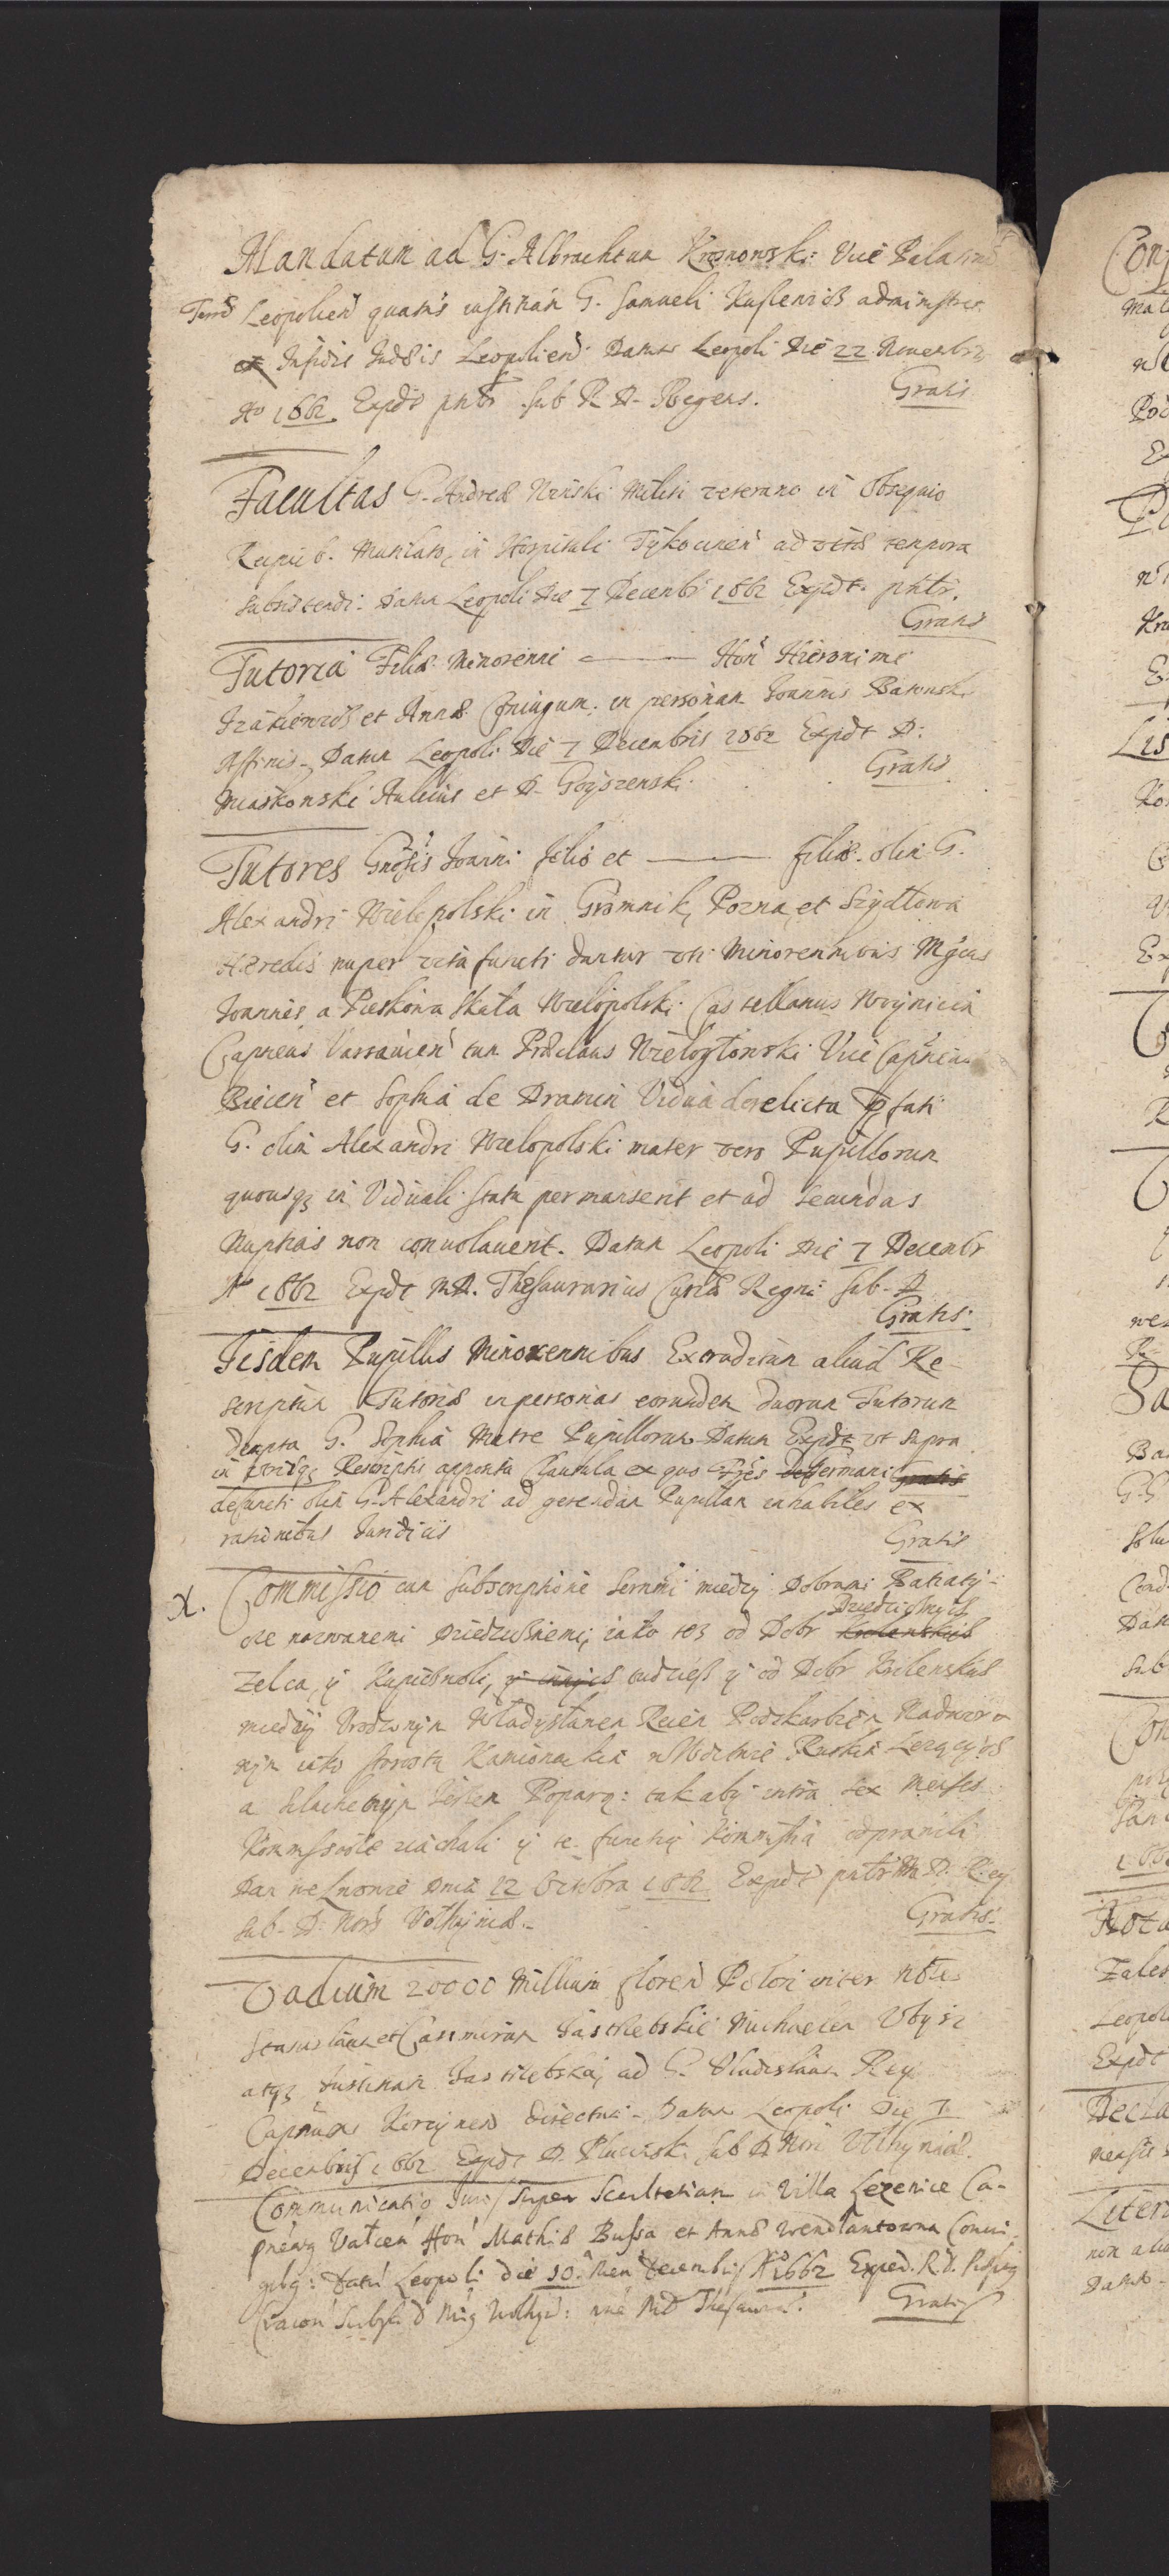 Mandatum ad G. Albrachtum Krasnowski Vice Palatinū
Terrӕ Leopolien quatenus iustitiam G. Samueli Kuslewicz administret
ex Infidis Judӕis Leopolien. Datum Leopoli Die 22 Novembris
Aō 1662. Expdt phtr sub R D. Regens. Gratis
Facultas G. Andreӕ Niński Militi veterano in Obsequio
Reipub. Mutilato, in Hospitali Tykocinen ad vitӕ tempora
subsistendi. Datum Leopoli Die 7 Decembr 1662 Expdt. phtr.
Gratis
Tutoria Filiӕ Minorenni — Hon Hieronimi
et Annӕ Coniugum. in personam Joannis Batowski
Affinis. Datum Leopoli Die 7 Decembris 1662 Expdt D.
Miaskowski Aulicus et D. Goyszewski. Gratis
Tutores Gnosis Joanni filio et — filiӕ olim G.
Alexandri Wielopolski in Gromnik, Pozna, et Szydłowa
Hӕredis nuper vita functi dantur uti Minorennibus Mgcus
Joannes a Pieskowa Skała Wielopolski Castellanus Woynicen
Capneus Varsavien tum Prӕclaus Wielogłowski Vice Capneus
Biecen et Sophia de Dramin Vidua derelicta pfati
G. olim Alexandri Wielopolski mater vero Pupillorum
quousqȝ in Viduali statu permanserit et ad secundas
Nuptias non convolaverit. Datum Leopoli Die 7 Decembr
Aō 1662 Expdt M D. Thesaurarius Curiӕ Regni sub D
Gratis.
Iisdem Pupillis Minorennibus Extraditum aliud Re-
scriptum Tutoriӕ in personas eorundem duorum Tutorum
dempta G. Sophia Matre Pupillorum Datum Expdt ut supra
in utrisqȝ Rescriptis apposita Clausula ex quo frēs Germani gratis
defuncti olim G. Alexandri ad gerendam Pupillam inhabiles ex
rationibus Juridicis Gratis
X. Commissio cum subscriptione Sermi między Dobrami Ratiaty-
cze nazwanemi Dziedzicznemi, iako tesz od Dobr Dziedzicznych
Zelca, y Kupicwoli, y innych tudziesz y od Dobr Krilewskich
miedzy Urodzonym Władysławem Reiem Podskarbim Nadwor-
nym iako Starostą Kamionackim w Wdztwie Ruskim Lezących
a Szlachetnym Popara: tak aby intra sex menses
Kommissarze ziachali y te functią Kommissią odprawili
Dan we Lwowie Dnia 12 Octobra 1662 Expdt phtr M D. Rey
sub D. Nors Volhyniӕ. Gratis.
Vadium 20000 Millium floren Poloni inter Nobles
Stanislaum et Casimirum Jastrzebskie Michaelem Ubysz
atqȝ Justinam Jastrzebska, ad G. Vladislaum Rey
Capneum Korcynen directum. Datum Leopoli Die 7
Decembris 1662 Expdt D. Plucinski sub D Nori Volhyniӕ.
Communicatio Juris super Scultetiam in Villa Lezenice Ca-
pneatq Valcen Hon Mathiӕ Bussa et Annӕ Wendlantowna Coniu-
gibq: Datu Leopoli die 10. Men decembris Aō 1662 Exped. R.D.
Cracon Gratis